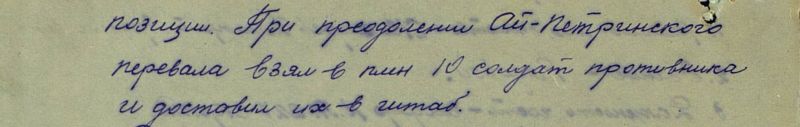 позиции. При преодолении Ай-Петринского
перевала взял в плен 10 солдат противника
и доставил их в штаб.